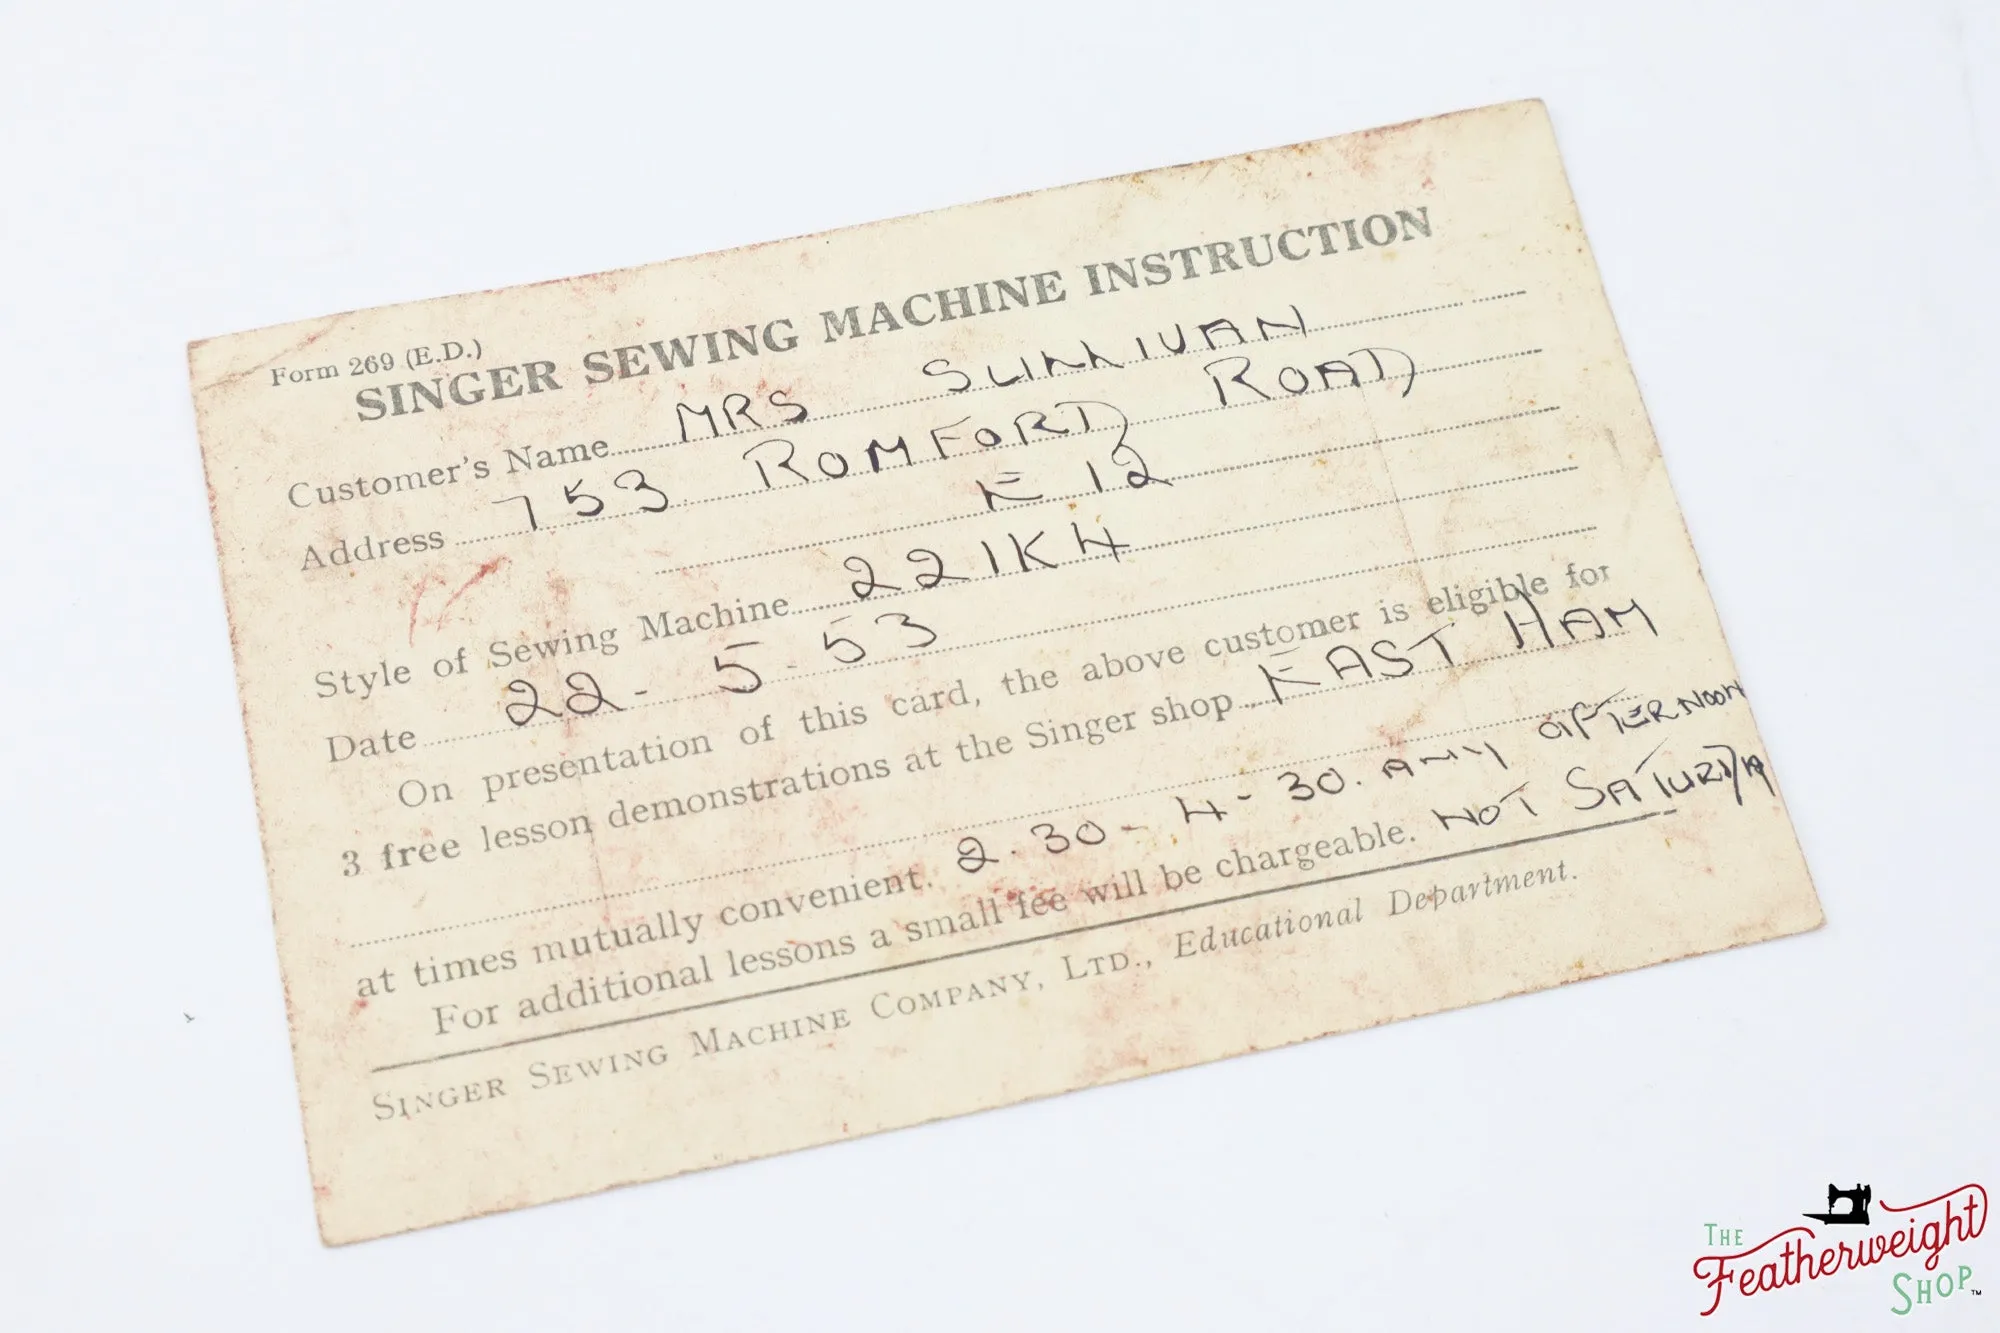 Form 269 (E.D.)
SINGER SEWING MACHINE INSTRUCTION
Customer's Name MRS SULLIVAN
Address 753 ROMFORD ROAD
E 12
Style of Sewing Machine 221K4
Date 22 - 5 - 53
On presentation of this card, the above customer is eligible for
3 free lesson demonstrations at the Singer shop EAST HAM
at times mutually convenient. 2.30 - 4 - 30. ANY AFTERNOON
For additional lessons a small fee will be chargeable. NOT SATURDA
SINGER SEWING MACHINE COMPANY, LTD., Educational Department.
THE
Featherweight
SHOP™